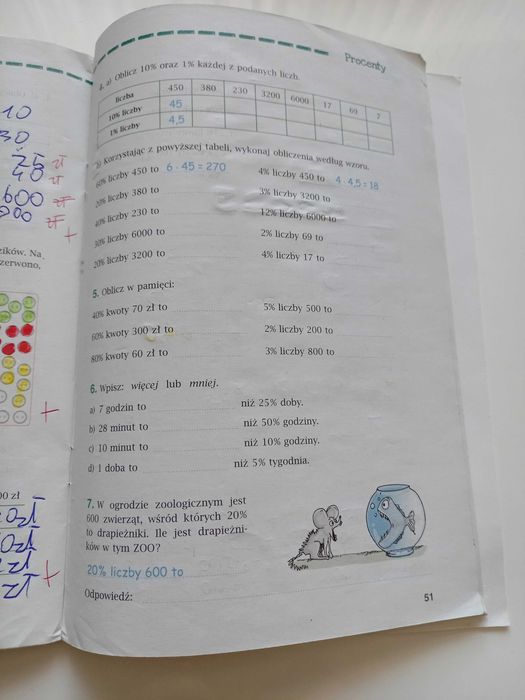 Procenty
4. a) Oblicz 10% oraz 1% każdej z podanych liczb.
liczba 450 380 230 3200 6000 17 69 7
10% liczby 45
1% liczby 4,5
b) Korzystając z powyższej tabeli, wykonaj obliczenia według wzoru.
60% liczby 450 to 6 · 45 = 270
4% liczby 450 to 4 · 4,5 = 18
20% liczby 380 to
3% liczby 3200 to
40% liczby 230 to
12% liczby 6000 to
30% liczby 6000 to
2% liczby 69 to
20% liczby 3200 to
4% liczby 17 to
5. Oblicz w pamięci:
40% kwoty 70 zł to
5% liczby 500 to
60% kwoty 300 zł to
2% liczby 200 to
80% kwoty 60 zł to
3% liczby 800 to
6. Wpisz: więcej lub mniej.
a) 7 godzin to niż 25% doby.
b) 28 minut to niż 50% godziny.
c) 10 minut to niż 10% godziny.
d) 1 doba to niż 5% tygodnia.
7. W ogrodzie zoologicznym jest
600 zwierząt, wśród których 20%
to drapieżniki. Ile jest drapieżni-
ków w tym ZOO?
20% liczby 600 to
Odpowiedź:
51
10
30
zł
40 zł
600 zł
zł
zików. Na
zerwono,
00 zł